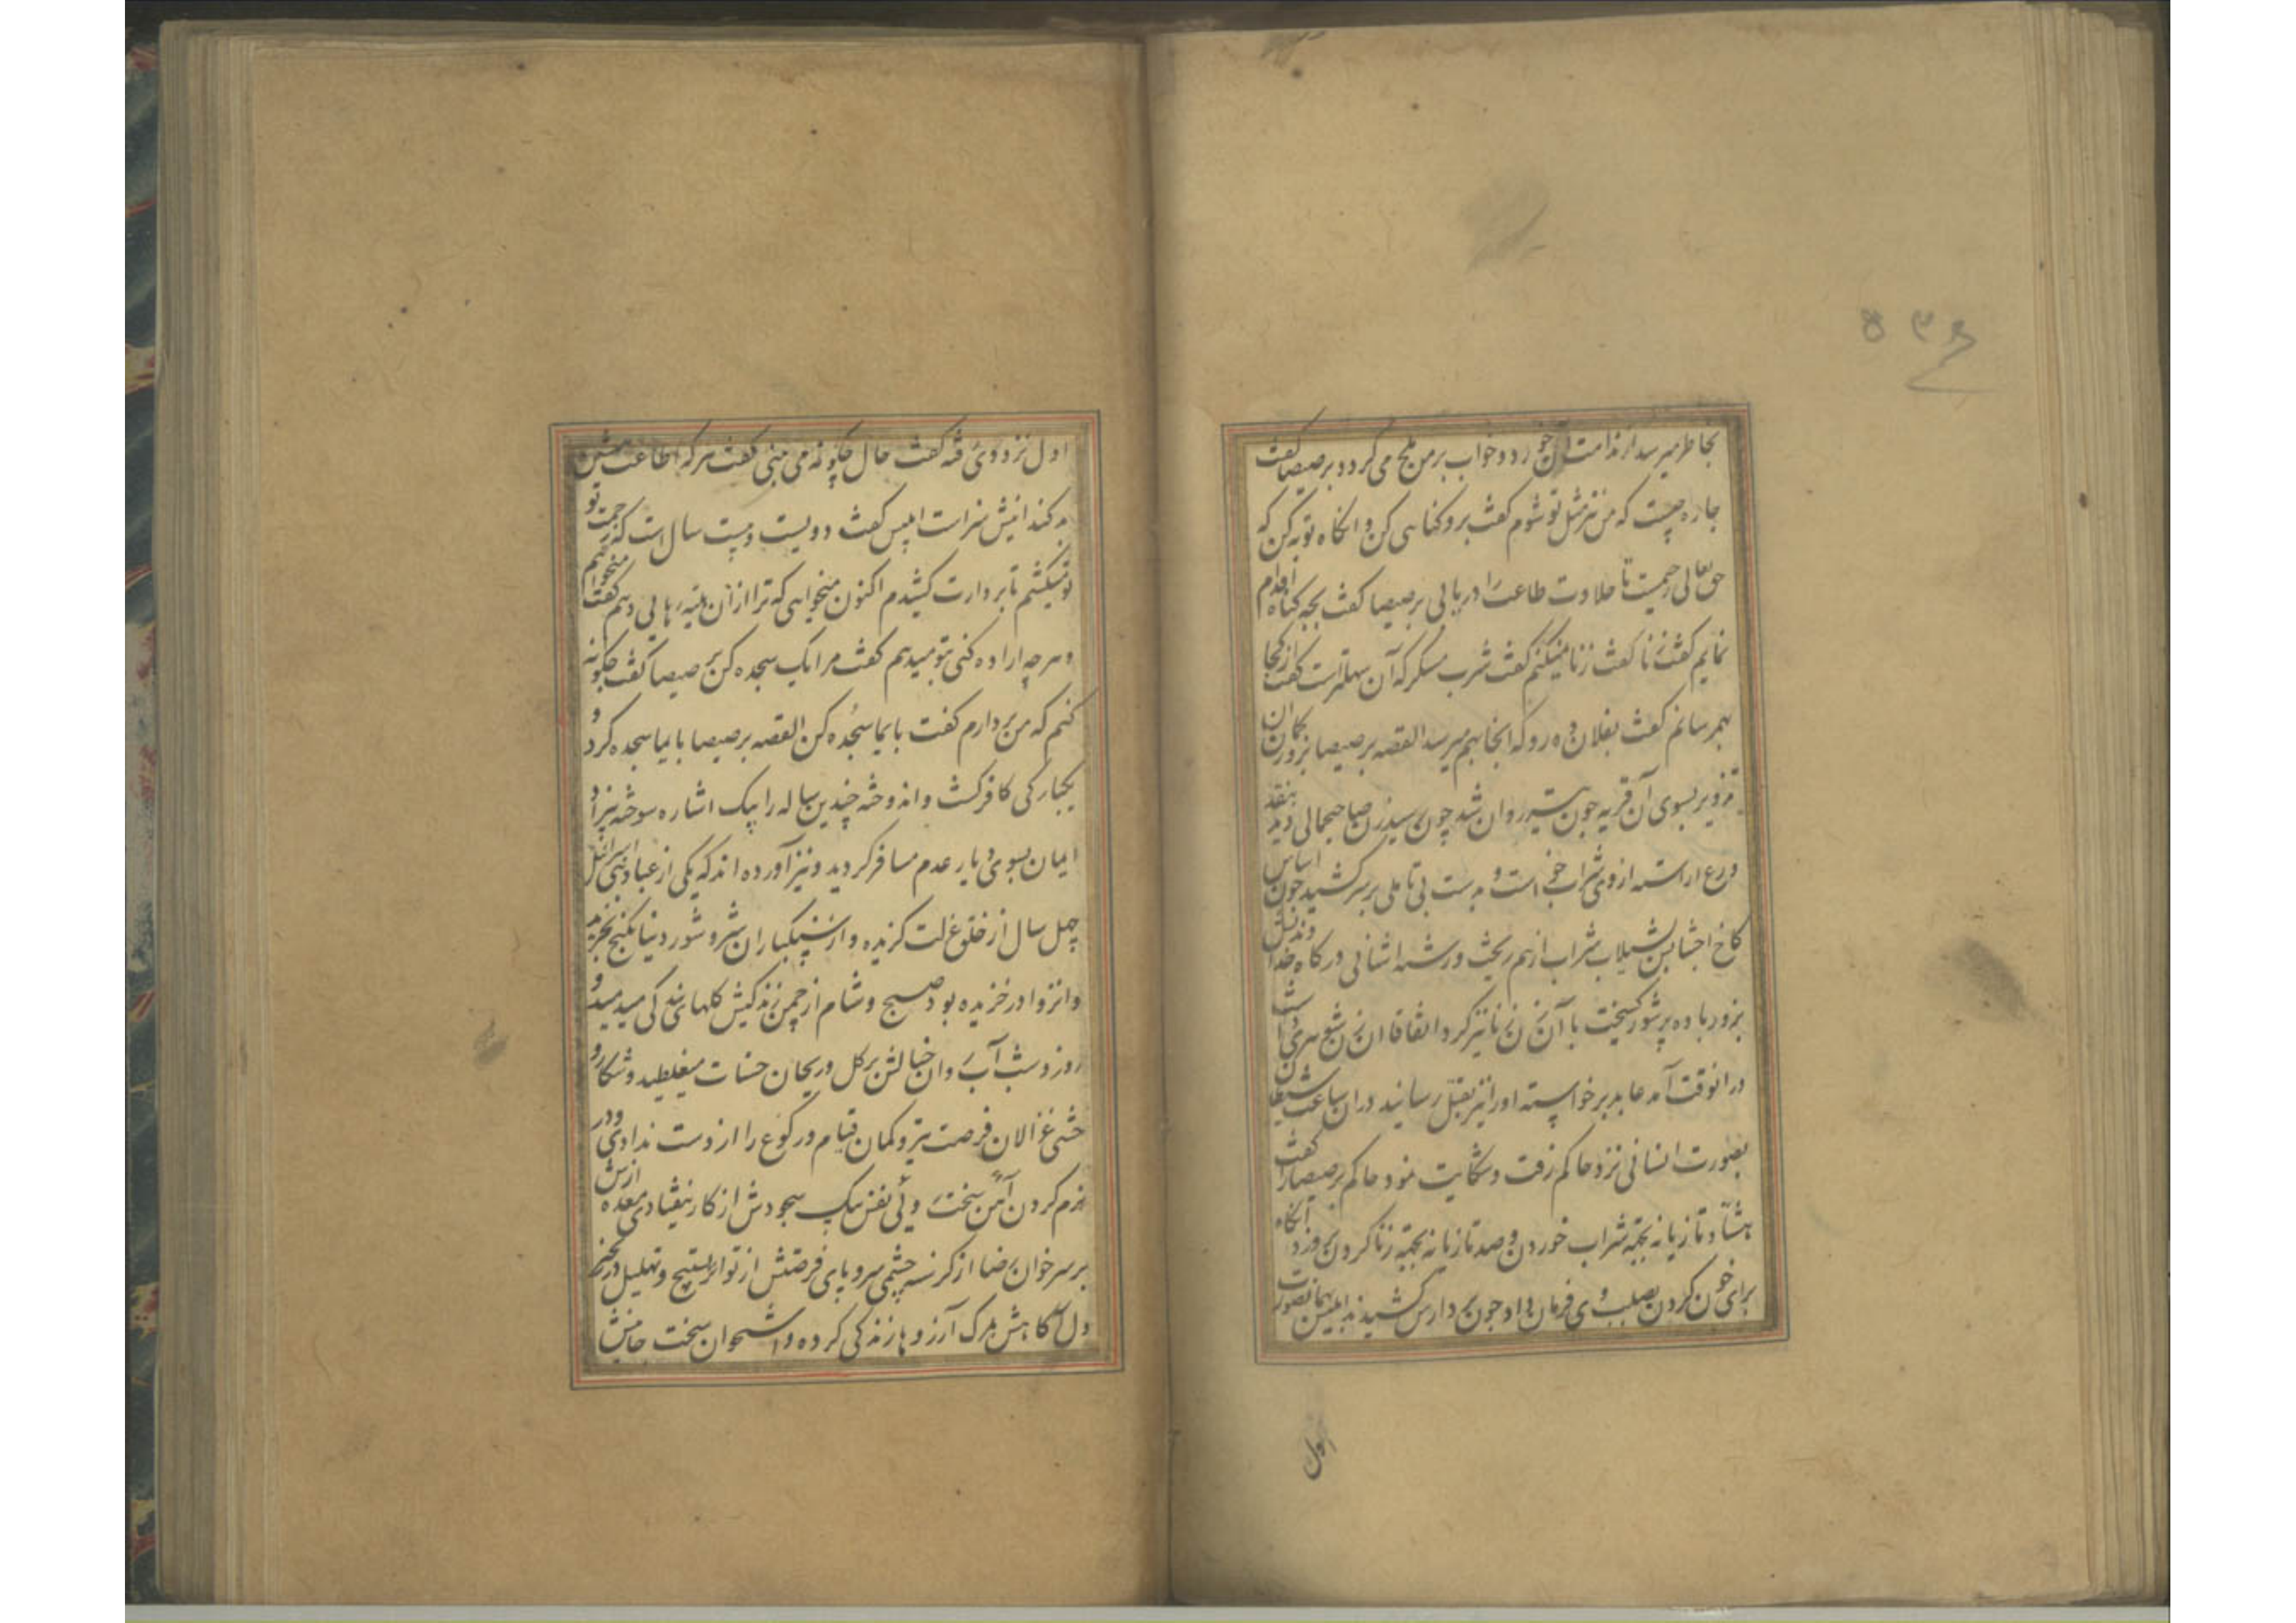 ۵۳۶
بخاطر میرسد از ندامت آن خورد و خواب بر من تلخ می گردد برصیصا گفت
چاره چیست که من نیز مثل تو شوم گفت برو گناهی کن و انگاه توبه کن که
حق تعالی رحیمست تا حلاوت طاعت را دریابی برصیصا گفت بچه گناه اقدام
نمایم گفت زنا گفت زنا نمیکنم گفت شرب مسکر که آن سهلترست گفت از کجا
بهم رسانم گفت بفلان ده رو که انجا بهم میرسد القصه برصیصا بزور کمان ان
تزویر بسوی آن قریه چون تیر روان شد چون رسید زن صاحب جمالی دید بنقد
ورع اراسته از وی شراب خواست و بدست بی تاملی بر سر کشید چون اساس
کاخ اجتنابش بسیلاب شراب ازهم ریخت و رشته اشنائی درگاه خدا
بزور باده پرشور گسیخت با آن زن زنا نیز کرد اتفاقا ان زن شوهری
در انوقت آمد عابد برخواسته او را نیز بقتل رسانید در ان ساعت
بصورت انسانی نزد حاکم رفت و شکایت نمود حاکم برصیصا را گفت
هشتاد تازیانه بجهة شراب خوردن و صد تازیانه بجهة زنا کردن بزدند آنگاه
برای خون کردن بصلب وی فرمان داد چون بر دارش کشیدند ابلیس بهمان صورت
اول
اول نزد وی رفته گفت حال چگونه می بینی گفت هر که اطاعت
بد کند اینش سزاست ابلیس گفت دویست و بیست سال است که زحمت تو
میکشم تا بر دارت کشیدم اکنون میخواهی که ترا از ان رهایی دهم گفت میخواهم
و هر چه اراده کنی بتو میدهم گفت مرا یک سجده کن برصیصا گفت چگونه
کنم که من بر دارم گفت بایما سجده کن القصه برصیصا بایما سجده کرد و
یکبارگی کافر گشت و اندوخته چندین ساله را بیک اشاره سوخته
ایمان بسوی دیار عدم مسافر گردید و نیز آورده اند که یکی از عباد بنی اسرائیل
چهل سال از خلق عزلت گزیده و از سنگباران شر و شور دنیا بکنج تجرید
و انزوا در خزیده بود صبح و شام از چمن زندگیش گلهای بندگی میدمید و
روز و شب آب روان خیالش بر گل و ریحان حسنات میغلطید و شکار
غزالان فرصت تیر و کمان قیام و رکوع را از دست ندادی و در
نرم کردن آهن سخت روئی نفس پتک سجودش از کار نیفتادی معده ازش
بر سر خوان رضا از گرسنه چشمی سیر و پای فرصتش از تواتر تسبیح و تهلیل در زنجیر
دل آگاهش بمرگ آرزوها زندگی کرده و استخوان سخت جانیش